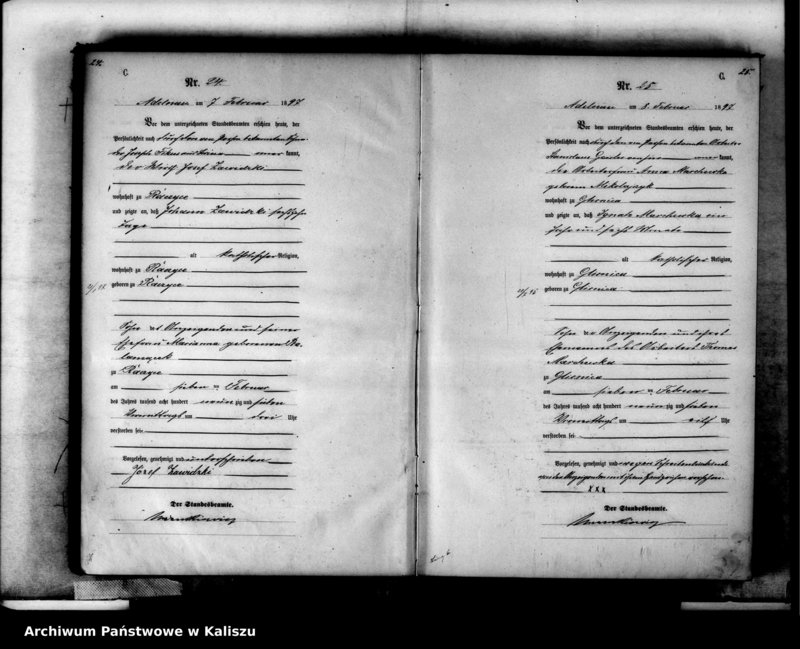 24.
C.
Nr. 24.
Adelnau am 7 Februar 1897
Vor dem unterzeichneten Standesbeamten erschien heute, der
Persönlichkeit nach
der Joseph kannt,
der Wirth Josef Zawidzki
wohnhaft zu Raczyce
und zeigte an, daß Johann Zawidzki
Tage
alt katholischer Religion,
wohnhaft zu Raczyce
geboren zu Raczyce
Sohn des Anzeigenden und seiner
Ehefrau Marianna geborenen
zu Raczyce
am sieben ten Februar
des Jahres tausend acht hundert neun zig und sieben
Vormittags um drei Uhr
verstorben sei.
Vorgelesen, genehmigt und unterschrieben
Josef Zawidzki
Der Standesbeamte.
25.
C.
Nr. 25
Adelnau am 8. Februar 1897.
Vor dem unterzeichneten Standesbeamten erschien heute, der
Persönlichkeit nach
kannt,
die Arbeiterfrau Anna Marchewka
geborene Mikolajczyk
wohnhaft zu Glisnica
und zeigte an, daß Ignatz Marchewka ein
Jahr und sechs Monate
alt katholischer Religion,
wohnhaft zu Glisnica
geboren zu Glisnica
Sohn der Anzeigenden und ihres
Ehemannes des Arbeiters Thomas
Marchewka
zu Glisnica
am sieben ten Februar
des Jahres tausend acht hundert neun zig und sieben
Vormittags um elf Uhr
verstorben sei.
Vorgelesen, genehmigt und wegen Schreibensunkunde
von der Anzeigenden mit ihrem Handzeichen versehen.
XXX
Der Standesbeamte.
Archiwum Państwowe w Kaliszu